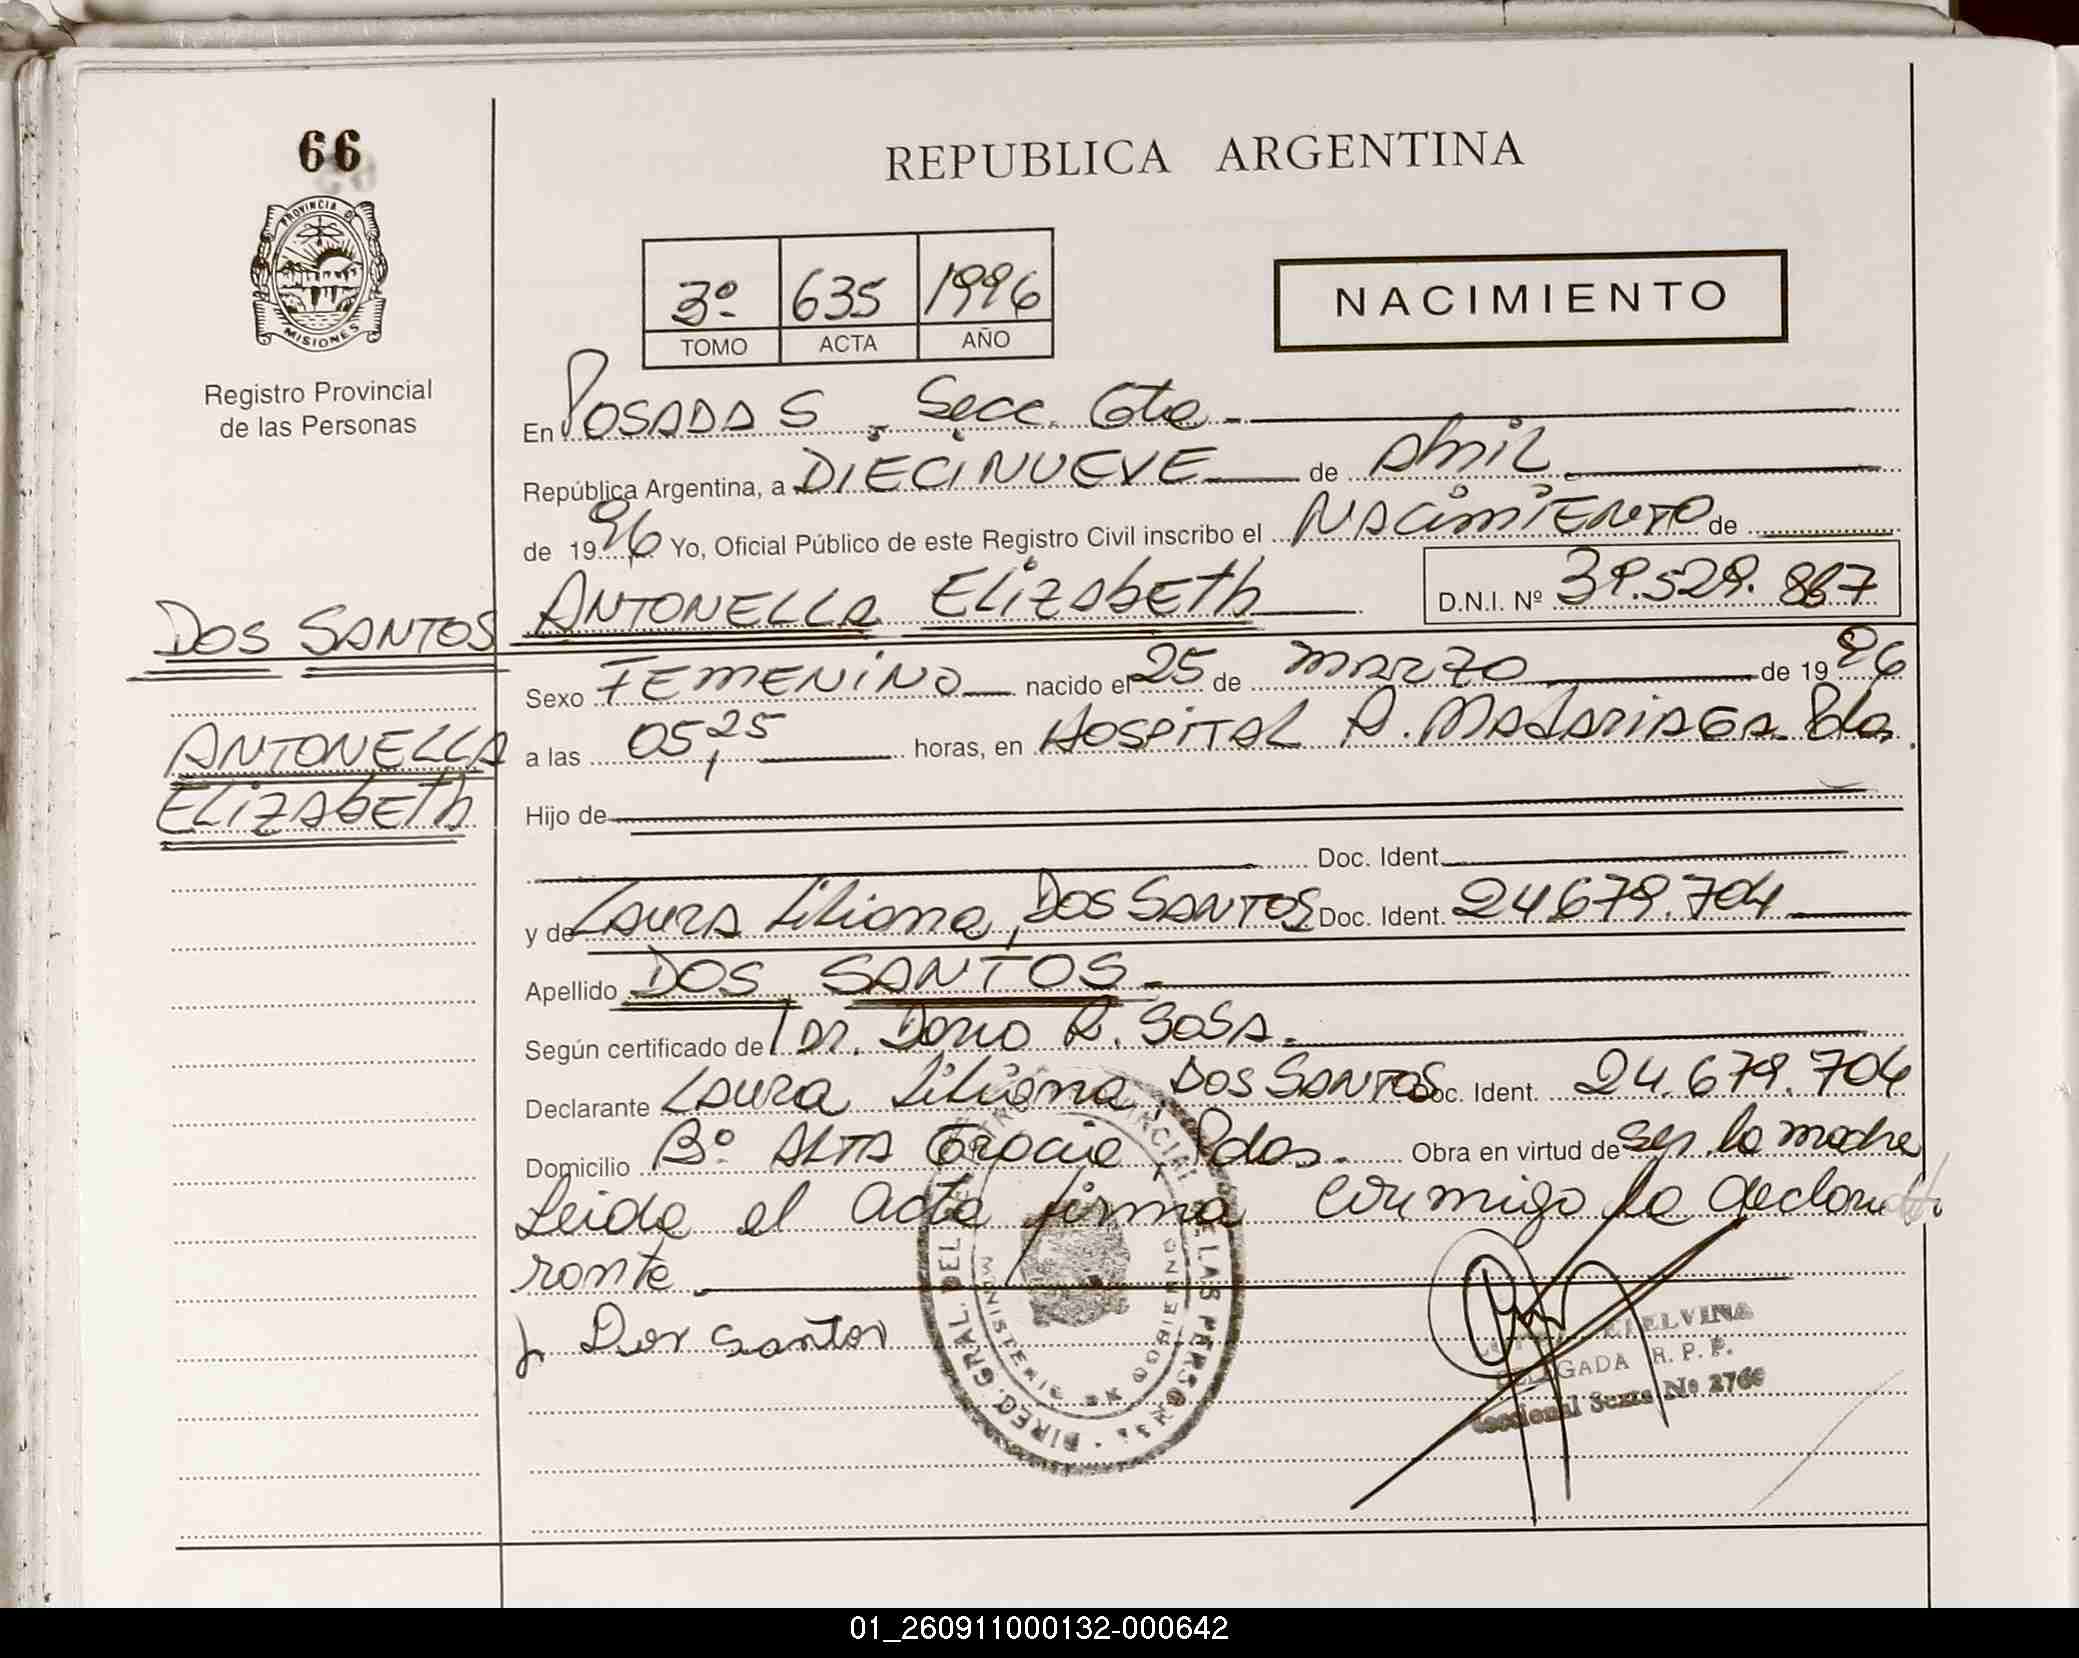 66
PROVINCIA D
MISIONES
Registro Provincial
de las Personas
REPUBLICA ARGENTINA
3º 635 1996
TOMO ACTA AÑO
NACIMIENTO
En POSADAS . Secc. 6ta -
República Argentina, a DIECINUEVE de Abril
de 1996 Yo, Oficial Público de este Registro Civil inscribo el NACIMIENTO de
DOS SANTOS ANTONELLA ELIZABETH D.N.I. Nº 39.529.867
Sexo FEMENINO nacido el 25 de MARZO de 1996
ANTONELLA
ELIZABETH
a las 05,25 horas, en HOSPITAL R. MADARIAGA Pdas.
Hijo de
Doc. Ident.
y de LAURA Liliana, DOS SANTOS Doc. Ident. 24.679.704
Apellido DOS SANTOS -
Según certificado de Dr. Dario R. SOSA.
Declarante Laura Liliana, DOS SANTOS Doc. Ident. 24.679.704
Domicilio Bº ALTA Gracia, Pdas. Obra en virtud de ser la madre
Leida el acta firma conmigo la decla
rante
Dos Santos
DIREC. GRAL. DEL REGISTRO PROVINCIAL DE LAS PERSONAS
MINISTERIO DE GOBIERNO
ETELVINA
DELEGADA R. P. P.
Seccional Sexta Nº 2766
01_260911000132-000642